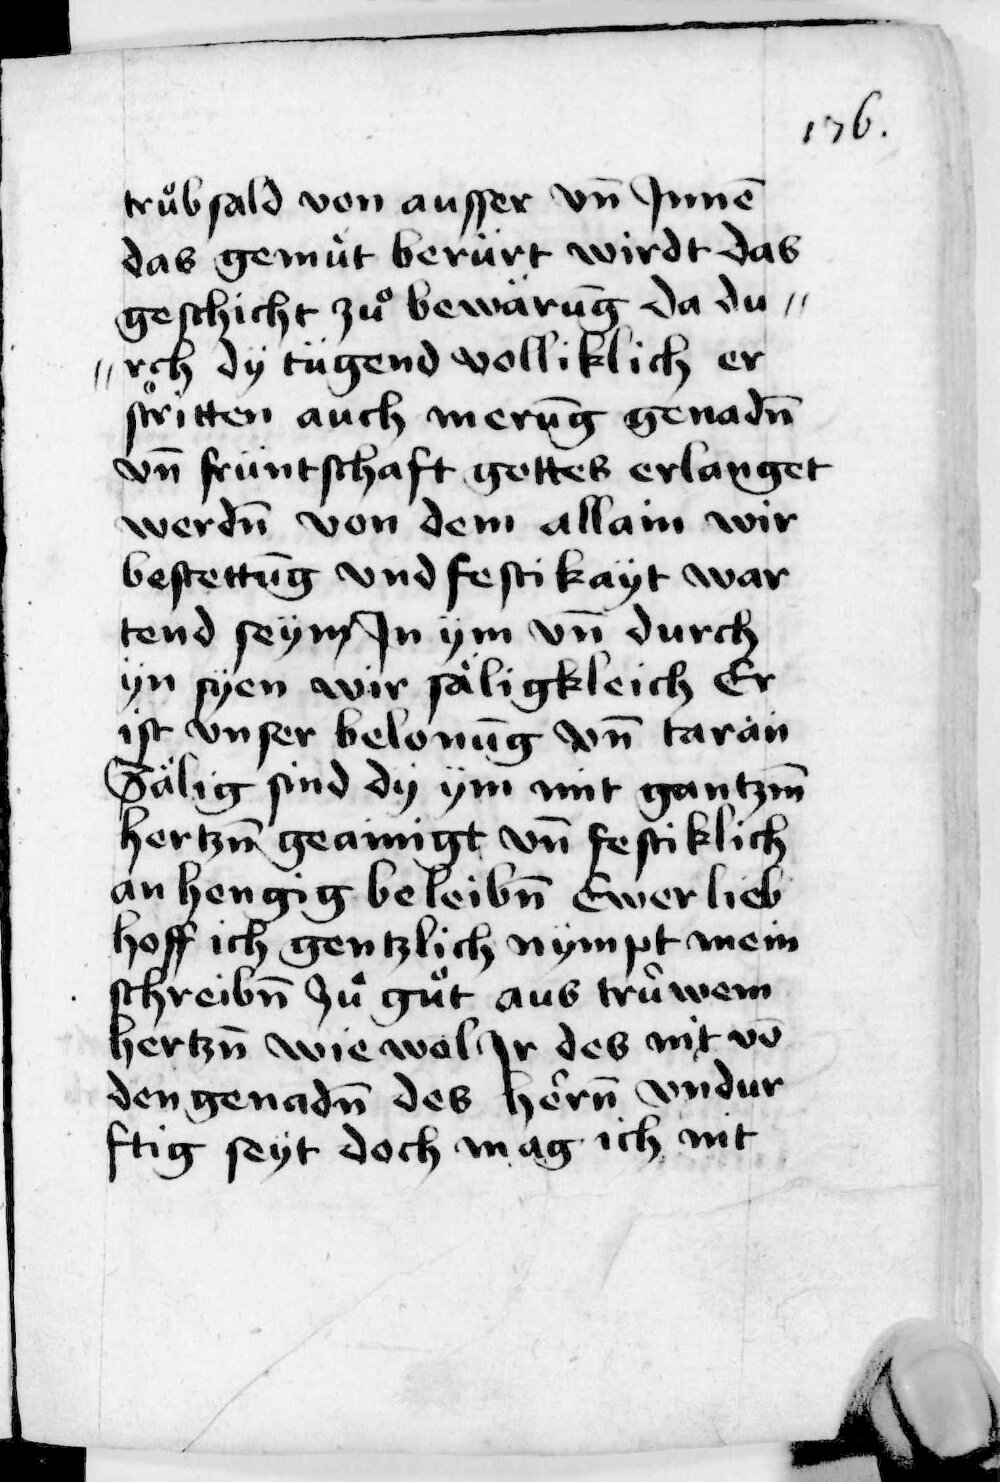 176.
truͦbsald von ausser vn̄ Jnnē
das gemüt berürt wirdt das
geschicht zuͦ bewärūg da du //
// rch dÿ tügend volliklich er
stritten auch merūg genadn̄
vn̄ früntschaft gottes erlanget
werdn̄ von dem allain wir
bestettūg vnd festikaÿt war
tend seÿm Jn ÿm vn̄ durch
ÿn sÿen wir säligkleich Er
ist vnser belonūg vn̄ taran
Sälig sind dÿ ÿm mit gantzm̄
hertzn̄ geainigt vn̄ festiklich
anhengig beleibn̄ Ewer lieb
hoff ich gentzlich nÿmpt mein
schreibn̄ Zuͦ guͦt aus trüwem
hertzn̄ wie wol Jr des nit vō
den genadn̄ des hern̄ vndur
ftig seÿt doch mag ich nit